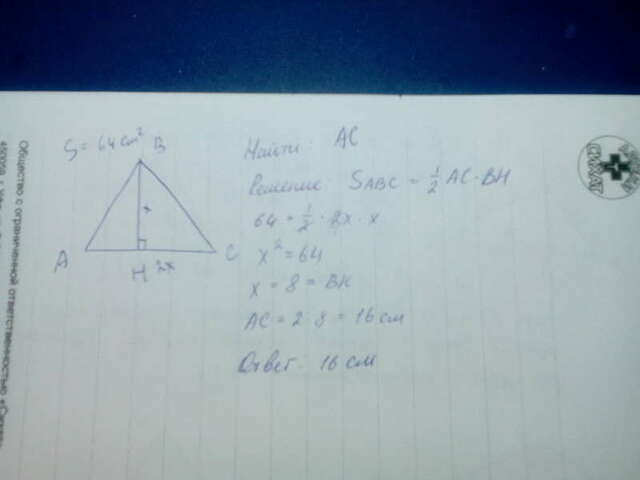 S = 64 см² B
A
H 2x
C
x
Найти: AC
Решение: SABC = 1/2 AC · BH
64 = 1/2 · 2x · x
x² = 64
x = 8 = BH
AC = 2 · 8 = 16 см
Ответ: 16 см
Общество с ограниченной ответственностью